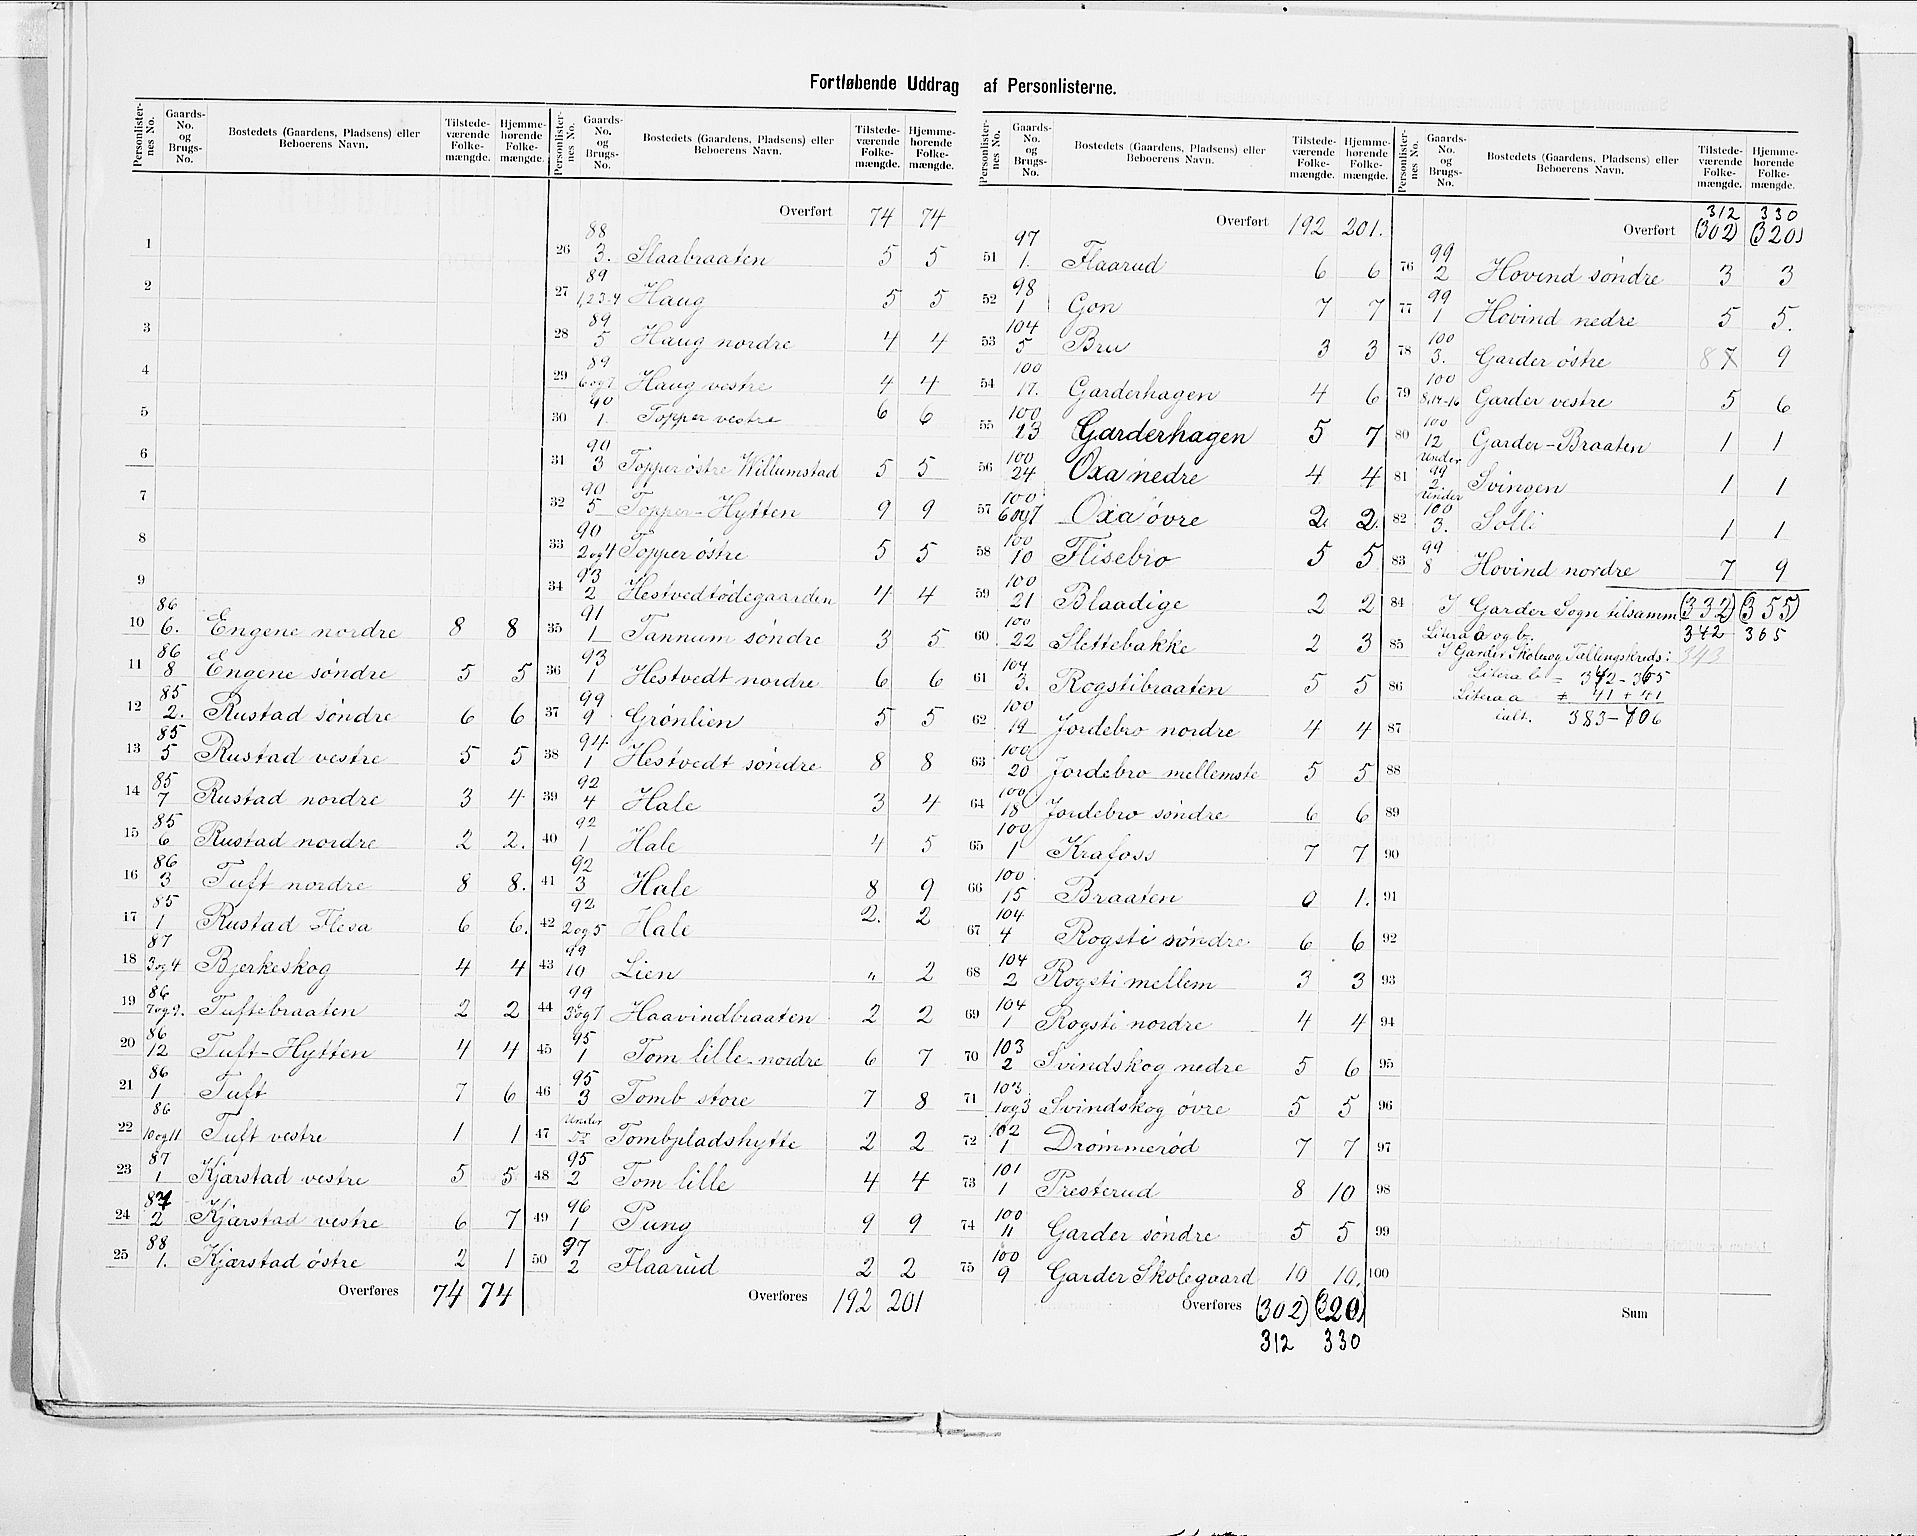 Fortløbende Uddrag af Personlisterne.
Personlister-nes No. | Gaards-No. og Brugs-No. | Bostedets (Gaardens, Pladsens) eller Beboerens Navn. | Tilstede-værende Folke-mængde. | Hjemme-hørende Folke-mængde.
1
2
3
4
5
6
7
8
9
10 | 86 6. | Engene nordre | 8 | 8
11 | 86 8 | Engene søndre | 5 | 5
12 | 85 2. | Rustad søndre | 6 | 6
13 | 85 5 | Rustad vestre | 5 | 5
14 | 85 7 | Rustad nordre | 3 | 4
15 | 85 6 | Rustad nordre | 2 | 2.
16 | 86 3 | Tuft nordre | 8 | 8.
17 | 85 1 | Rustad Flesa | 6 | 6.
18 | 87 3og4 | Bjerkeskog | 4 | 4
19 | 86 7og9. | Tuftebraaten | 2 | 2
20 | 86 12 | Tuft-Hytten | 4 | 4
21 | 86 1 | Tuft | 7 | 6
22 | 86 10og11 | Tuft vestre | 1 | 1
23 | 87 1 | Kjærstad vestre | 5 | 5
24 | 87 2 | Kjærstad vestre | 6 | 7
25 | 88 1. | Kjærstad østre | 2 | 1
Overføres | 74 | 74
Personlister-nes No. | Gaards-No. og Brugs-No. | Bostedets (Gaardens, Pladsens) eller Beboerens Navn. | Tilstede-værende Folke-mængde. | Hjemme-hørende Folke-mængde.
Overført | 74 | 74
26 | 88 3. | Slaabraaten | 5 | 5
27 | 89 1,2,3-4 | Haug | 5 | 5
28 | 89 5 | Haug nordre | 4 | 4
29 | 89 6og7 | Haug vestre | 4 | 4
30 | 90 1. | Topper vestre | 6 | 6
31 | 90 3 | Topper østre Willumstad | 5 | 5
32 | 90 5 | Topper-Hytten | 9 | 9
33 | 90 2og4 | Topper østre | 5 | 5
34 | 93 2 | Hestvedtødegaarden | 4 | 4
35 | 91 1 | Tannum søndre | 3 | 5
36 | 93 1 | Hestvedt nordre | 6 | 6
37 | 99 9 | Grønlien | 5 | 5
38 | 94. 1 | Hestvedt søndre | 8 | 8
39 | 92 4 | Hale | 3 | 4
40 | 92 1 | Hale | 4 | 5
41 | 92 3 | Hale | 8 | 9
42 | 92 2og5 | Hale | 2. | 2
43 | 99 10 | Lien | " | 2
44 | 99 3og7 | Haavindbraaten | 2 | 2
45 | 95 1 | Tom lille nordre | 6 | 7
46 | 95 3 | Tomb store | 7 | 8
47 | Under | Tombpladshytte | 2 | 2
48 | 95 2 | Tom lille | 4 | 4
49 | 96 1 | Pung | 9 | 9
50 | 97 2 | Flaarud | 2 | 2
Overføres | 192 | 201
Personlister-nes No. | Gaards-No. og Brugs-No. | Bostedets (Gaardens, Pladsens) eller Beboerens Navn. | Tilstede-værende Folke-mængde. | Hjemme-hørende Folke-mængde.
Overført | 192 | 201.
51 | 97 1. | Flaarud | 6 | 6
52 | 98 1 | Gon | 7 | 7
53 | 104 5 | Bru | 3 | 3
54 | 100 17. | Garderhagen | 4 | 6
55 | 100 13 | Garderhagen | 5 | 7
56 | 100 24 | Oxa nedre | 4 | 4
57 | 100 6og7 | Oxa øvre | 2. | 2.
58 | 100 10 | Flisebro | 5 | 5
59 | 100 21 | Blaadige | 2 | 2
60 | 100 22 | Slettebakke | 2 | 3
61 | 104 3. | Rogstibraaten | 5 | 5
62 | 100 19 | Jordebro nordre | 4 | 4
63 | 100 20 | Jordebro mellemste | 5 | 5
64 | 100 18 | Jordebro søndre | 6 | 6
65 | 100 1 | Krafoss | 7 | 7
66 | 100 15 | Braaten | 0 | 1.
67 | 104 4 | Rogsti søndre | 6 | 6
68 | 104 2 | Rogsti mellem | 3 | 3
69 | 104 1 | Rogsti nordre | 4 | 4
70 | 103 2 | Svindskog nedre | 5 | 6
71 | 103 1og3 | Svindskog øvre | 5 | 5
72 | 102 1 | Drømmerød | 7 | 7
73 | 101 1 | Presterud | 8 | 10
74 | 100 11 | Garder søndre | 5 | 5
75 | 100 9 | Garder Skolegaard | 10 | 10.
Overføres | (302) | (320)
312 | 330
Personlister-nes No. | Gaards-No. og Brugs-No. | Bostedets (Gaardens, Pladsens) eller Beboerens Navn. | Tilstede-værende Folke-mængde. | Hjemme-hørende Folke-mængde.
312 | 330
Overført | (302) | (320)
76 | 99 2 | Hovind søndre | 3 | 3
77 | 99 1 | Hovind nedre | 5 | 5.
78 | 100 3. | Garder østre | 8 7 | 9
79 | 100 8,14-16 | Garder vestre | 5 | 6
80 | 100 12 | Garder-Braaten | 1 | 1
81 | Under 99 2. | Svingen | 1 | 1
82 | Under 100 3. | Solli | 1 | 1
83 | 99 8 | Hovind nordre | 7 | 9
84 | I Garder Sogn tilsamm | (332) | (355)
Litera a og b. | 342 - 365
85 | I Garder Skole og Tællingskreds: | 343
Litera b = 342 - 365
86 | Litera a + 41 + 41
ialt. 383 - 406
87
88
89
90
91
92
93
94
95
96
97
98
99
100
Sum